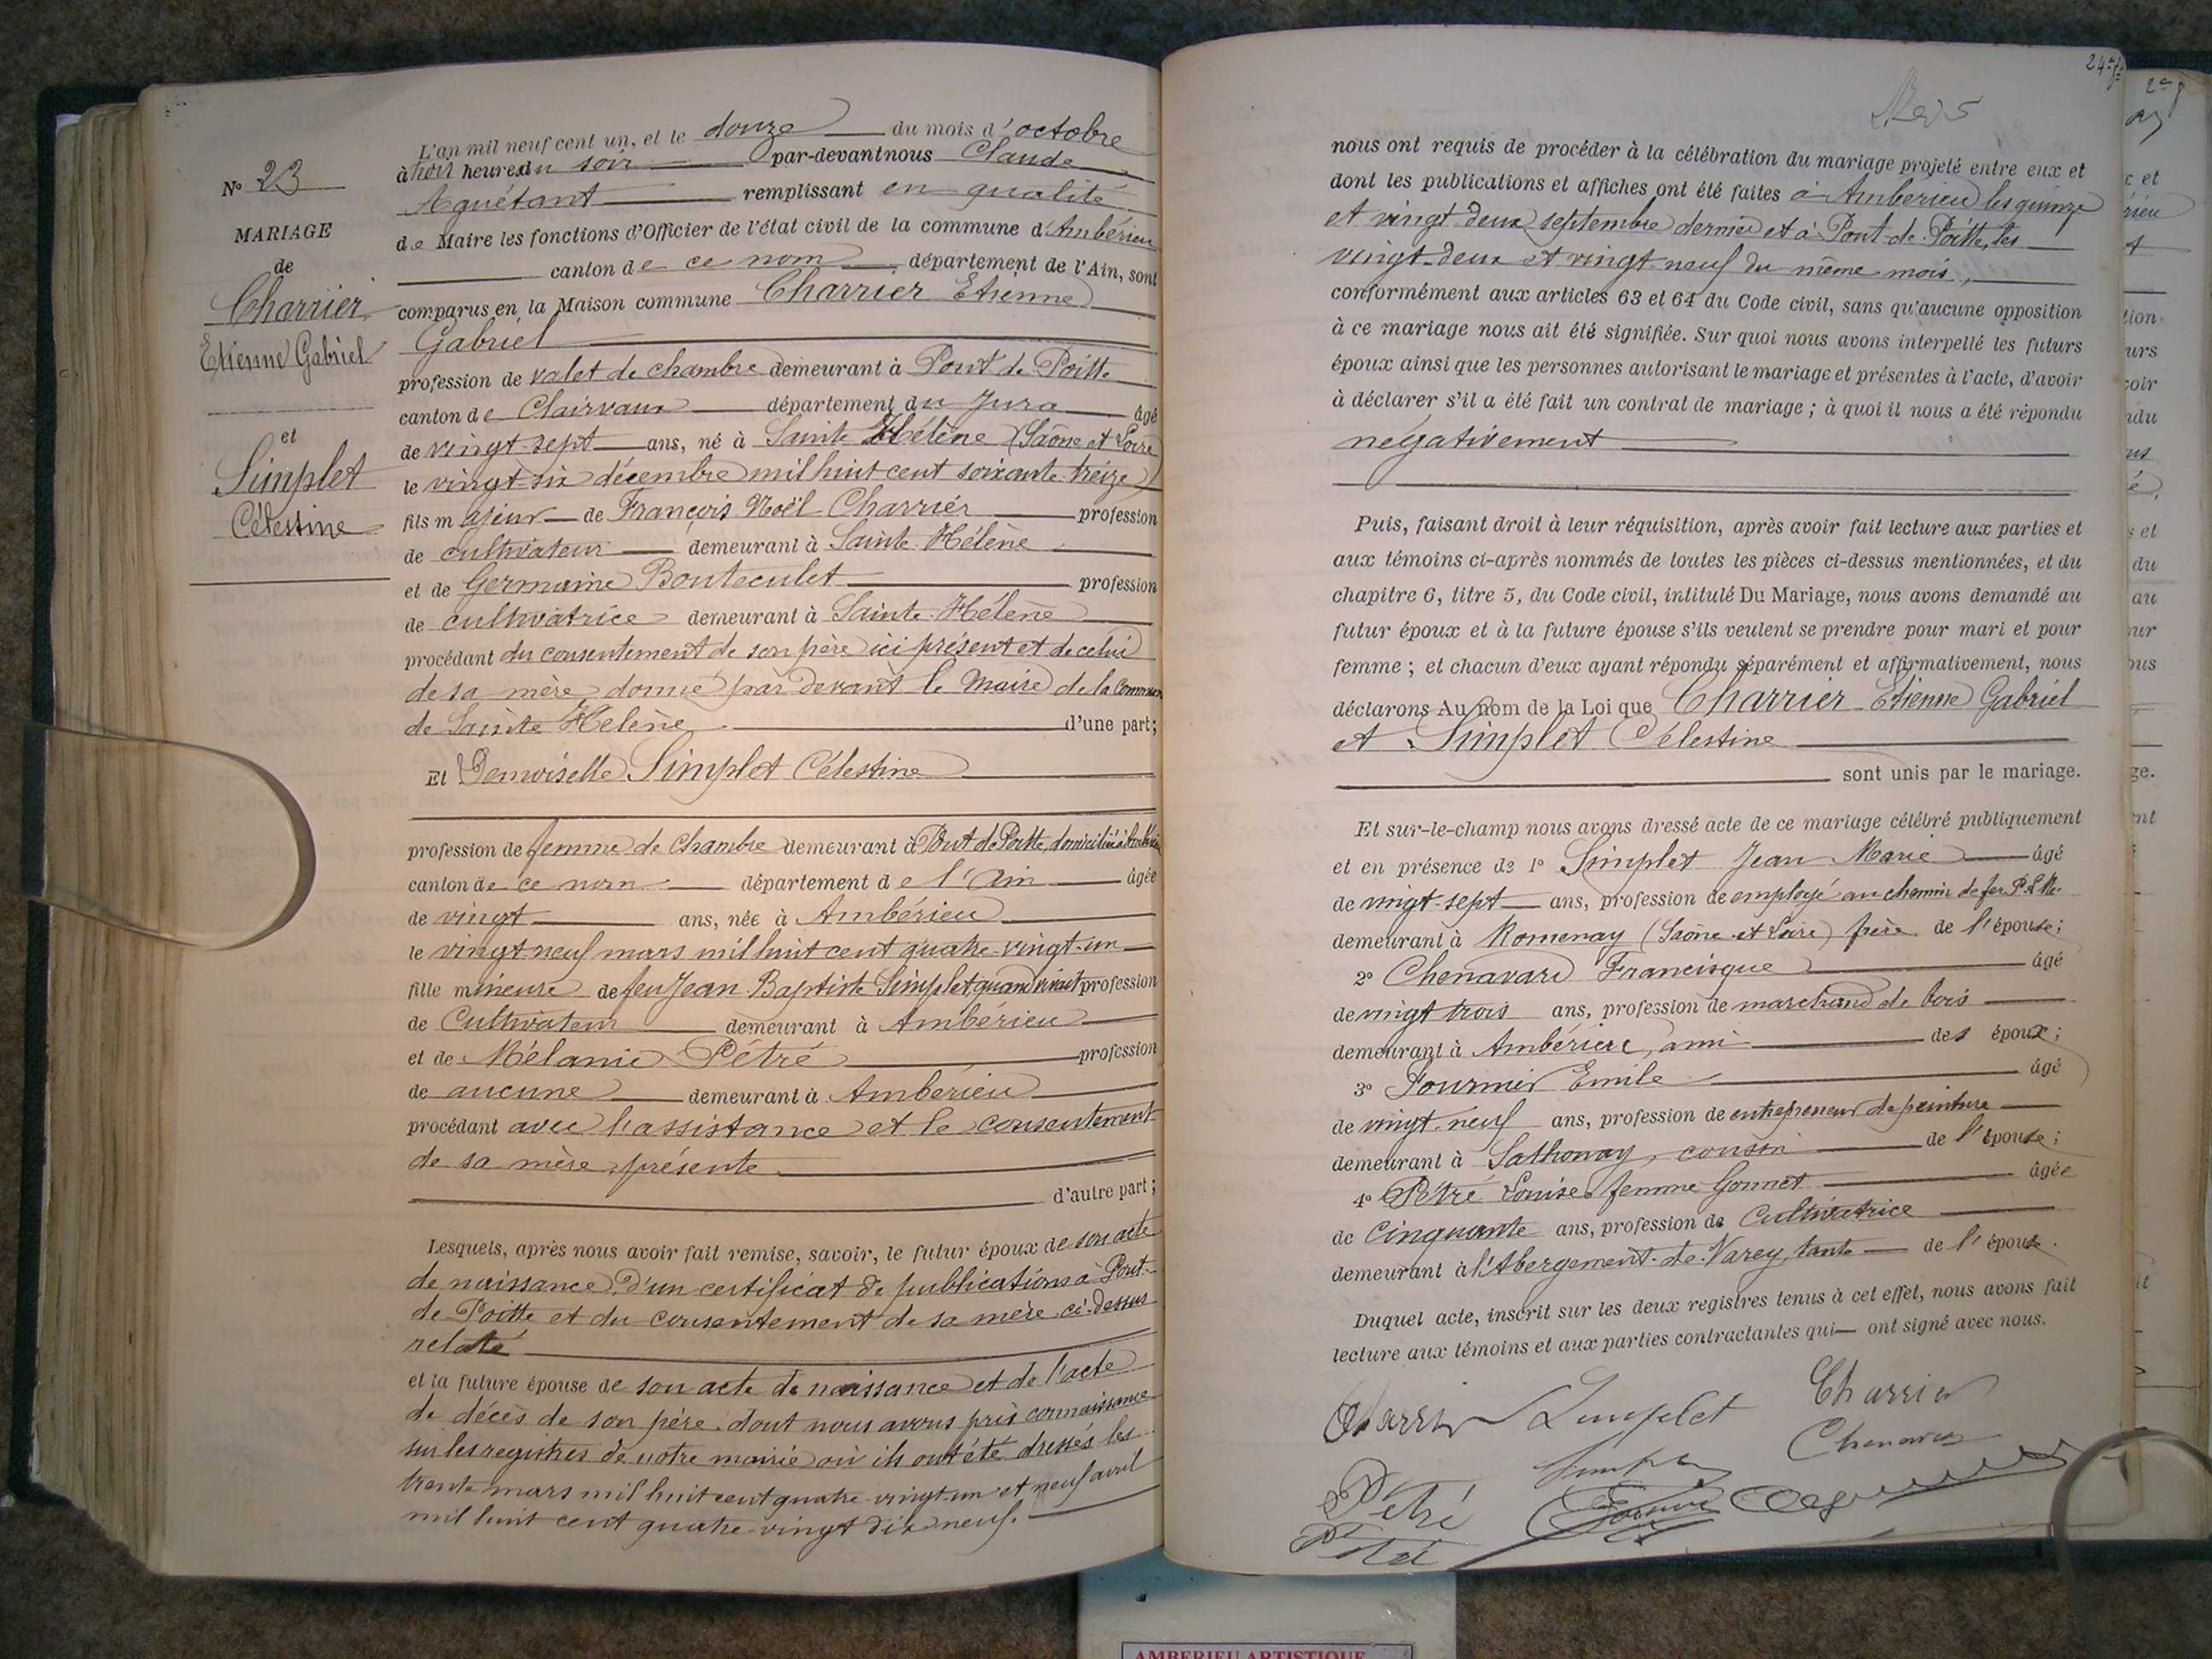 N° 23
MARIAGE
de
Charrier
Etienne Gabriel
et
Simplet
Célestine
L'an mil neuf cent un, et le douze du mois d'octobre
à trois heures du soir par-devant nous Claude
Aguétant remplissant en qualité
de Maire les fonctions d'Officier de l'état civil de la commune d'Ambérieu
canton de ce nom, département de l'Ain, sont
comparus en la Maison commune Charrier Etienne
Gabriel
profession de valet de chambre demeurant à Pont de Poitte
canton de Clairvaux département du Jura âgé
de vingt-sept ans, né à Sainte Hélène (Saône et Loire)
le vingt-six décembre mil huit cent soixante-treize
fils majeur de François Noël Charrier profession
de cultivateur demeurant à Sainte-Hélène
et de Germaine Bouteculet profession
de cultivatrice demeurant à Sainte-Hélène
procédant du consentement de son père ici présent et de celui
de sa mère, donné par devant le Maire de la Commune
de Sainte Hélène d'une part;
Et Demoiselle Simplet Célestine
profession de femme de chambre demeurant à Pont de Poitte, domiciliée à Ambérieu
canton de ce nom département de l'Ain âgée
de vingt ans, née à Ambérieu
le vingt-neuf mars mil huit cent quatre-vingt-un
fille mineure de feu Jean-Baptiste Simplet, quand vivait profession
de Cultivateur demeurant à Ambérieu
et de Mélanie Pétré profession
de aucune demeurant à Ambérieu
procédant avec l'assistance et le consentement
de sa mère, présente
d'autre part;
Lesquels, après nous avoir fait remise, savoir, le futur époux de son acte
de naissance, d'un certificat de publications à Pont-
de-Poitte et du consentement de sa mère ci-dessus
relaté
et la future épouse de son acte de naissance et de l'acte
de décès de son père dont nous avons pris connaissance
sur les registres de notre mairie où ils ont été dressés les
trente mars mil huit cent quatre-vingt-un et neuf avril
mil huit cent quatre-vingt dix neuf.
24e f
nous ont requis de procéder à la célébration du mariage projeté entre eux et
dont les publications et affiches ont été faites à Ambérieu les quinze
et vingt-deux septembre dernier et à Pont-de-Poitte, les
vingt-deux et vingt-neuf du même mois,
conformément aux articles 63 et 64 du Code civil, sans qu'aucune opposition
à ce mariage nous ait été signifiée. Sur quoi nous avons interpellé les futurs
époux ainsi que les personnes autorisant le mariage et présentes à l'acte, d'avoir
à déclarer s'il a été fait un contrat de mariage; à quoi il nous a été répondu
négativement
Puis, faisant droit à leur réquisition, après avoir fait lecture aux parties et
aux témoins ci-après nommés de toutes les pièces ci-dessus mentionnées, et du
chapitre 6, titre 5, du Code civil, intitulé Du Mariage, nous avons demandé au
futur époux et à la future épouse s'ils veulent se prendre pour mari et pour
femme; et chacun d'eux ayant répondu séparément et affirmativement, nous
déclarons Au nom de la Loi que Charrier Etienne Gabriel
et Simplet Célestine
sont unis par le mariage.
Et sur-le-champ nous avons dressé acte de ce mariage célébré publiquement
et en présence de 1° Simplet Jean Marie âgé
de vingt-sept ans, profession de employé au chemin de fer P.L.M.
demeurant à Romenay (Saône-et-Loire) frère de l'épouse;
2° Chenavard Francisque âgé
de vingt trois ans, profession de marchand de bois
demeurant à Ambérieu, ami des époux;
3° Fournier Emile âgé
de vingt-neuf ans, profession de entrepreneur de peinture
demeurant à Sathonay, cousin de l'épouse;
4° Pétré Louise femme Gonnet âgée
de cinquante ans, profession de Cultivatrice
demeurant à l'Abergement-de-Varey, tante de l'épouse.
Duquel acte, inscrit sur les deux registres tenus à cet effet, nous avons fait
lecture aux témoins et aux parties contractantes qui ont signé avec nous.
Charrier Simplet Charrier
Chenavard
Pétré
Pétré
AMBERIEU ARTISTIQUE